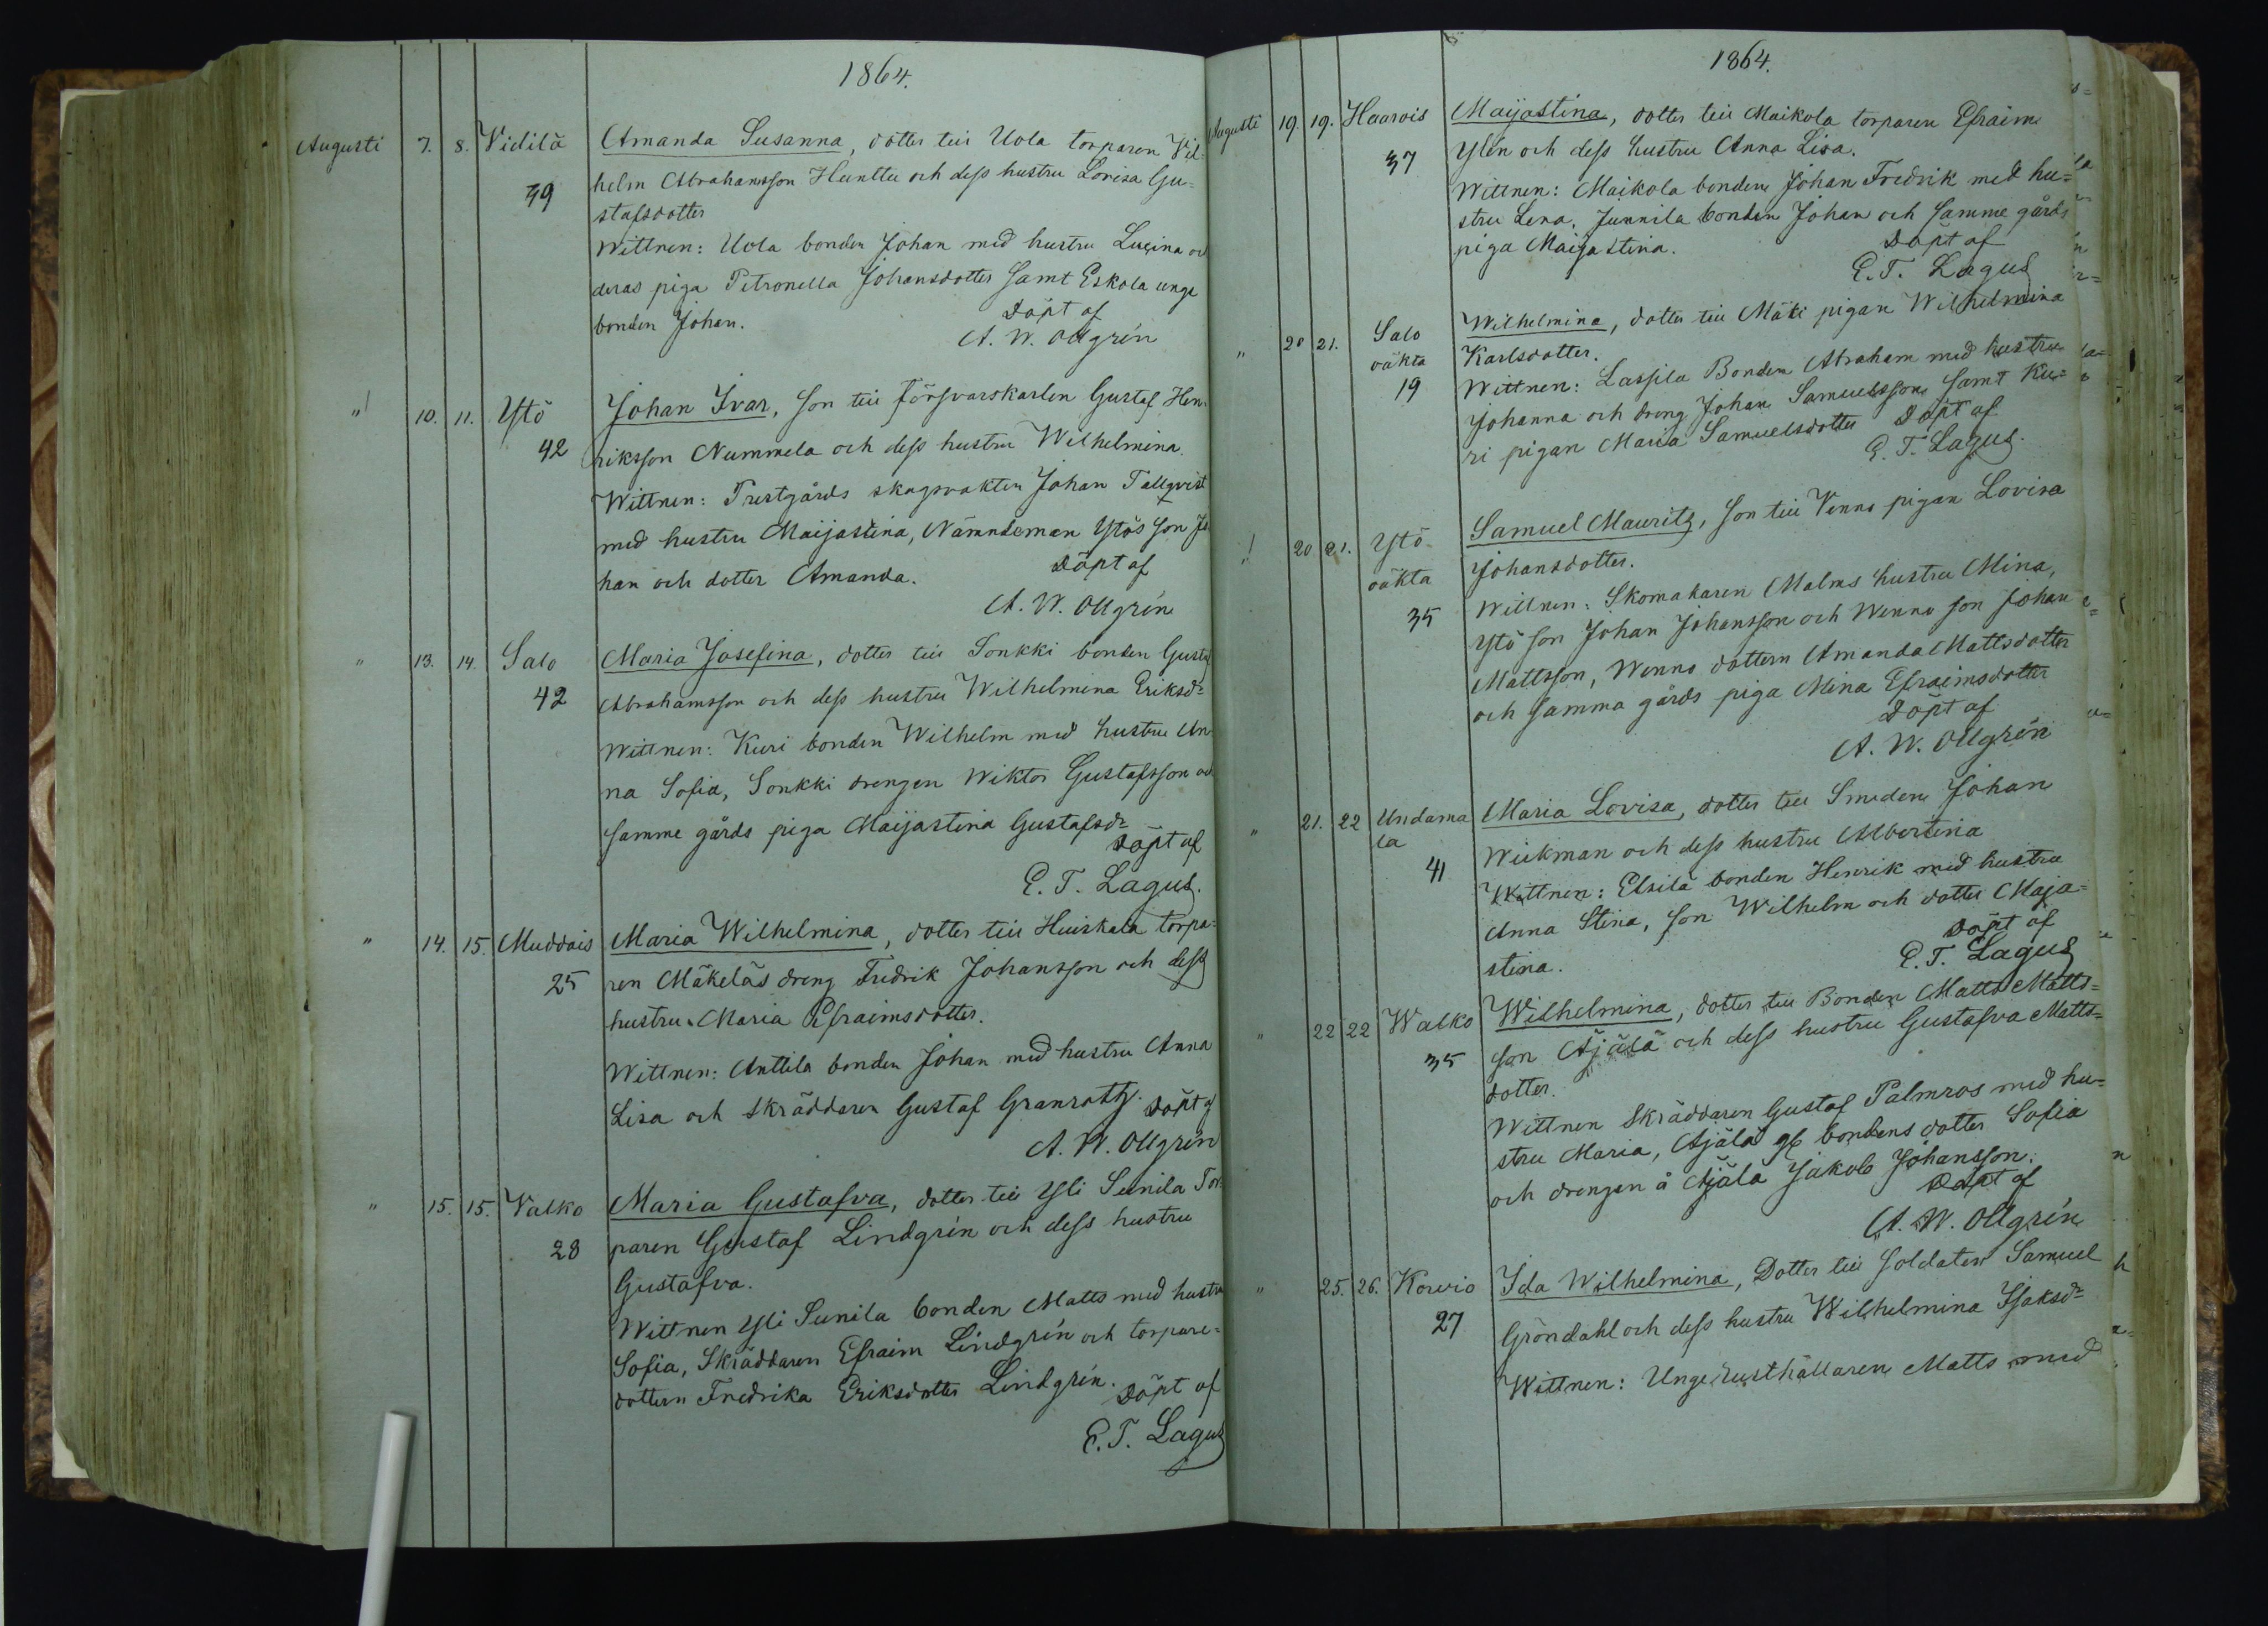 1864.
Augusti 7. 8. Vidilä Amanda Susanna, dotter till Uola torparen Wil=
39 helm Abrahamsson Hunttu och dess hustru Lovisa Gu=
stafsdotter
Wittnen: Uola bonden Johan med hustru Lucina och
deras piga Petronella Johansdotter samt Eskola unge
bonden Johan. Döpt af
A. W. Ollgrén
" 10. 11. Ytö Johan Ivar, son till Försvarskarlen Gustaf Hen=
42 riksson Nummela och dess hustru Wilhelmina.
Wittnen: Prestgårds skogvakten Johan Tallqvist
med hustru Maijastina, Nämndeman Ytös son Jo
han och dotter Amanda. Döpt af
A. W. Ollgrén
" 13. 14. Salo Maria Josefina, dotter till Sonkki bonden Gustaf
42 Abrahamsson och dess hustru Wilhelmina Eriksdr
Wittnen: Kuri bonden Wilhelm med hustru An
na Sofia, Sonkki drengen Wiktor Gustafsson och
samme gårds piga Maijastina Gustafsdr
Döpt af
E. T. Lagus.
" 14. 15. Muddais Maria Wilhelmina, dotter till Huiskala torpa=
25 ren Mäkeläs dreng Fredrik Johansson och dess
hustru Maria Efraimsdotter.
Wittnen: Anttila bonden Johan med hustru Anna
Lisa och skräddaren Gustaf Granroth. Döpt af
A. W. Ollgrén
" 15. 15. Valko Maria Gustafva, dotter till Yli Sunila Tor=
28 paren Gustaf Lindgrén och dess hustru
Gustafva.
Wittnen Yli Sunila bonden Matts med hustru
Sofia, Skräddaren Efraim Lindgrén och torpare=
dottern Fredrika Eriksdotter Lindgrén. Döpt af
E. T. Lagus
1864.
Augusti 19. 19. Haarois Maijastina, dotter till Maikola torparen Efraim
37 Ylén och dess hustru Anna Lisa.
Wittnen: Maikola bonden Johan Fredrik med hu=
stru Lena, Junnila bonden Johan och samme gårds
piga Maijastina. Döpt af
E. T. Lagus
" 20 21. Salo Wilhelmina, dotter till Mäki pigan Wilhelmina
oäkta Karlsdotter.
19 Wittnen: Lassila Bonden Abraham med hustru
Johanna och dreng Johan Samuelsson samt Ku=
ri pigan Maria Samuelsdotter Döpt af
E. T. Lagus.
" 20 21. Ytö Samuel Mauritz, son till Venno pigan Lovisa
oäkta Johansdotter.
35 Wittnen: Skomakaren Malms hustru Mina,
Ytö son Johan Johansson och Wenno son Johan
Mattsson, Wenno dottern Amanda Mattsdotter
och samma gårds piga Mina Efraimsdotter
Döpt af
A. W. Ollgrén
" 21. 22 Undama Maria Lovisa, dotter till Smeden Johan
la Wiikman och dess hustru Albertina
41 Wittnen: Elsilä bonden Henrik med hustru
Anna Stina, son Wilhelm och dotter Maja=
stina. Döpt af
E. T. Lagus
" 22 22 Walko Wilhelmina, dotter till Bonden Matts Matts=
35 son Äjälä och dess hustru Gustafva Matts=
dotter.
Wittnen Skräddaren Gustaf Palmros med hu=
stru Maria, Äjälä gl bondens dotter Sofia
och drengen å Äjälä Jakob Johansson.
Döpt af
A. W. Ollgrén
" 25. 26. Korvio Ida Wilhelmina, Dotter till soldaten Samuel
27 Gröndahl och dess hustru Wilhelmina Isaksdr
Wittnen: Unge rusthållaren Matts med